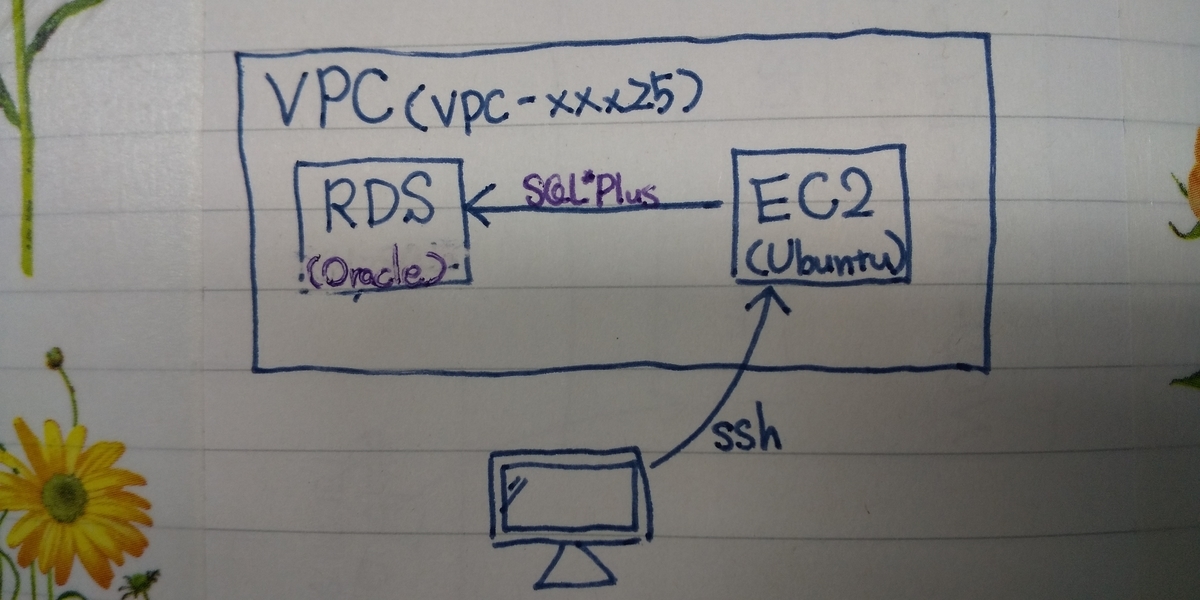 VPC (vpc-xxx25)
RDS
(Oracle)
SQL*Plus
EC2
(Ubuntu)
ssh